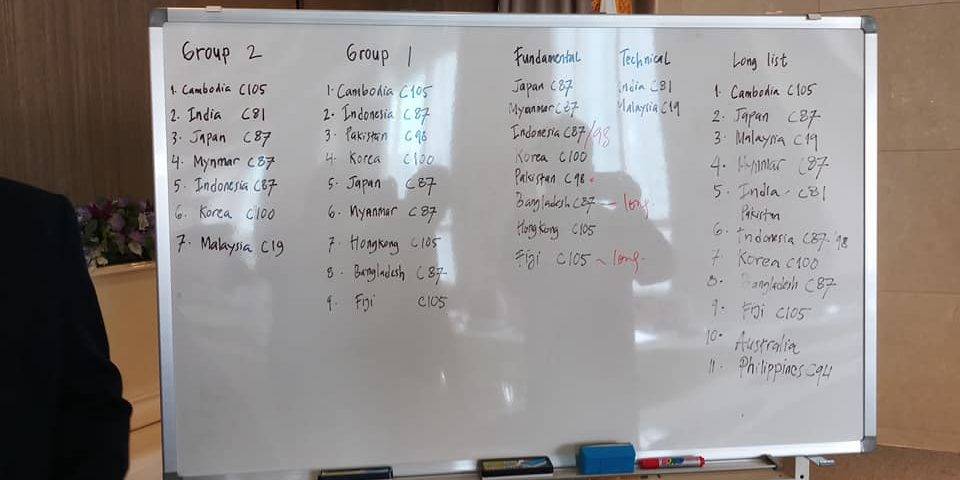 Group 2
1. Cambodia C105
2. India C81
3. Japan C87
4. Mynmar C87
5. Indonesia C87
6. Korea C100
7. Malaysia C19
Group 1
1. Cambodia C105
2. Indonesia C87
3. Pakistan C98
4. Korea C100
5. Japan C87
6. Myanmar C87
7. Hongkong C105
8. Bangladesh C87
9. Fiji C105
Fundamental
Japan C87
Myanmar C87
Indonesia C87/98
Korea C100
Pakistan C98
Bangladesh C87 - long
Hongkong C105
Fiji C105 ~ long.
Technical
India C81
Malaysia C19
Long list
1. Cambodia C105
2. Japan C87
3. Malaysia C19
4. Mynmar C87
5. India - C81
Pakistan
6. Indonesia C87-98
7. Korea C100
8. Bangladesh C87
9. Fiji C105
10. Australia
11. Philippines C94